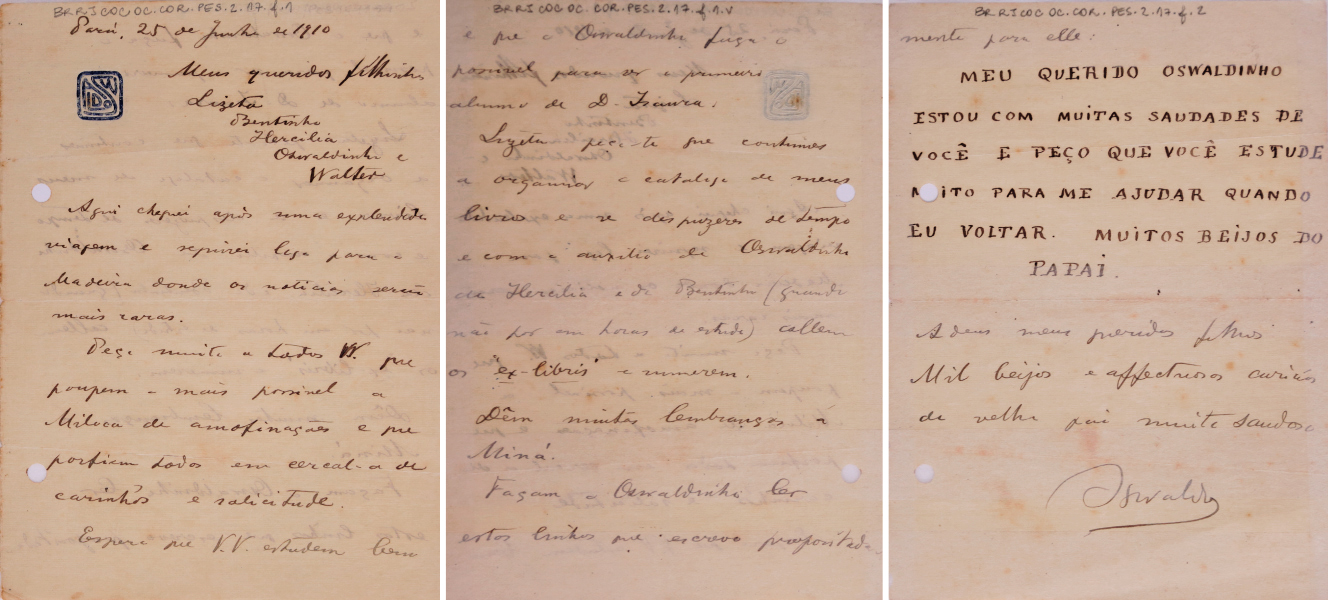 BR RJCOC OC. COR. PES. 2.17. f. 1
Pará, 25 de Junho de 1910
Meus queridos filhinhos
Lizeta
Bentinho
Hercilia
Oswaldinho e
Walter
Aqui cheguei após uma explendida
viagem e seguirei logo para o
Madeira donde as noticias serão
mais raras.
Peço muito a todos VV. que
poupem o mais possivel a
Miloca de amofinações e que
porfiem todos em cercal-a de
carinhos e solicitude.
Espero que V.V. estudem bem
BR RJCOC OC. COR. PES. 2.17. f. 1.v
e que o Oswaldinho faça o
possivel para ser o primeiro
alumno de D. Isaura.
Lizeta peço-te que continues
a organisar o catalogo de meus
livros e se dispuzeres de tempo
e com o auxilio de Oswaldinho
da Hercilia e do Bentinho (quando
não for em horas de estudo) collem
os "ex-libris" e numerem.
Dêm muitas lembranças á
Miná.
Façam o Oswaldinho ler
estas linhas que escrevo proposital-
BR RJCOC OC. COR. PES. 2.17. f. 2
mente para elle:
MEU QUERIDO OSWALDINHO
ESTOU COM MUITAS SAUDADES DE
VOCÊ E PEÇO QUE VOCÊ ESTUDE
MUITO PARA ME AJUDAR QUANDO
EU VOLTAR. MUITOS BEIJOS DO
PAPAI.
Adeus meus queridos filhos
Mil beijos e affectuosos carinhos
do velho pai muito saudoso
Oswaldo